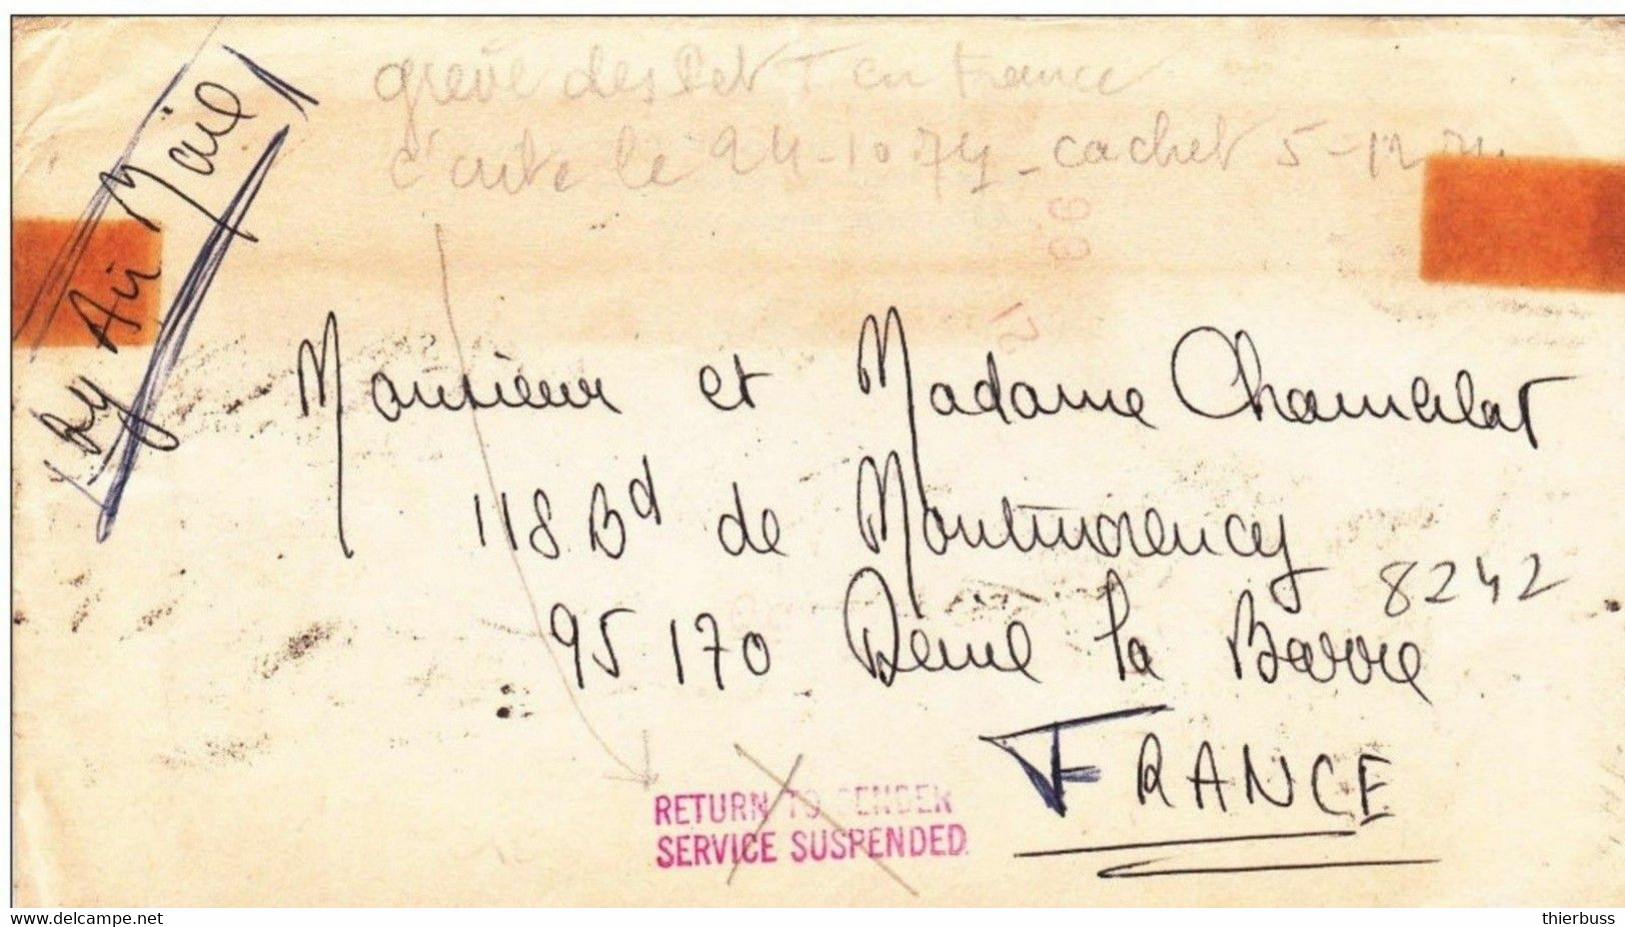 grève des P et T en France
écrite le 24-10-74 - cachet 5-12 74
By Air Mail
Monsieur et Madame
118 Bd de Montmorency
8242
95170 Deuil la Barre
FRANCE
RETURN TO SENDER
SERVICE SUSPENDED
www.delcampe.net
thierbuss